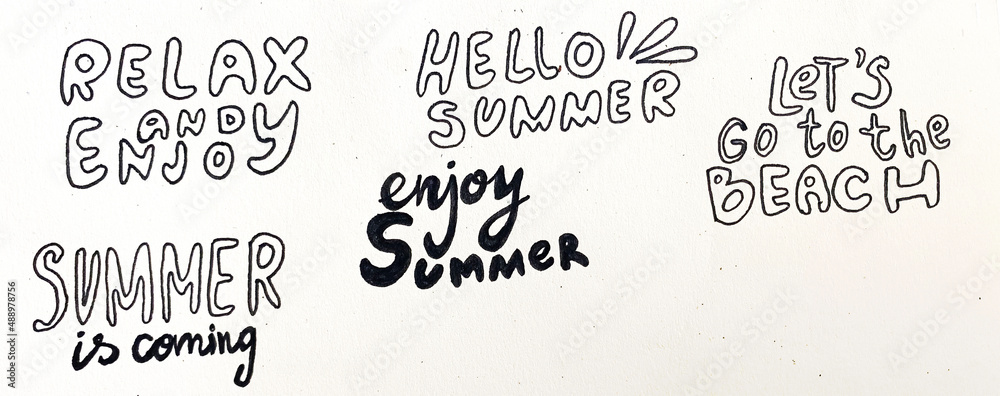 RELAX
AND
ENJOY
HELLO
SUMMER
LeT'S
Go to the
BEACH
enjoy
SUMMER
SUMMER
is coming
Adobe Stock | #488978756